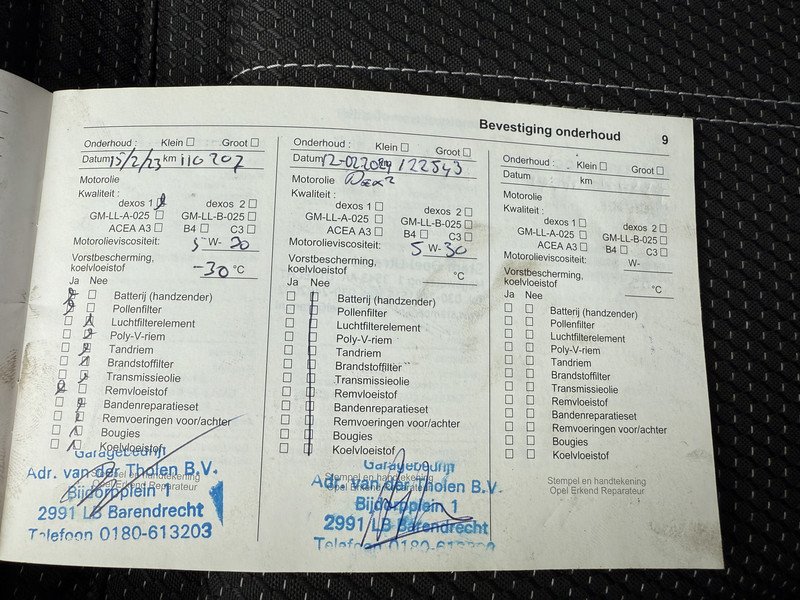 Bevestiging onderhoud 9
Onderhoud : Klein ☐ Groot ☐
Datum 15/2/23 km 110 207
Motorolie
Kwaliteit :
dexos 1 ☒ dexos 2 ☐
GM-LL-A-025 ☐ GM-LL-B-025 ☐
ACEA A3 ☐ B4 ☐ C3 ☐
Motorolieviscositeit: 5 W- 20
Vorstbescherming,
koelvloeistof -30 °C
Ja Nee
Batterij (handzender)
Pollenfilter
Luchtfilterelement
Poly-V-riem
Tandriem
Brandstoffilter
Transmissieolie
Remvloeistof
Bandenreparatieset
Remvoeringen voor/achter
Bougies
Koelvloeistof
Stempel en handtekening
Opel Erkend Reparateur
Garagebedrijf
Adr. van der Tholen B.V.
Bijdorpplein 1
2991 LB Barendrecht
Telefoon 0180-613203
Onderhoud : Klein ☐ Groot ☐
Datum 12-02-2024 122543
Motorolie Dex 2
Kwaliteit :
dexos 1 ☐ dexos 2 ☐
GM-LL-A-025 ☐ GM-LL-B-025 ☐
ACEA A3 ☐ B4 ☐ C3 ☐
Motorolieviscositeit: 5 W- 30
Vorstbescherming,
koelvloeistof °C
Ja Nee
Batterij (handzender)
Pollenfilter
Luchtfilterelement
Poly-V-riem
Tandriem
Brandstoffilter
Transmissieolie
Remvloeistof
Bandenreparatieset
Remvoeringen voor/achter
Bougies
Koelvloeistof
Stempel en handtekening
Opel Erkend Reparateur
Garagebedrijf
Adr. van der Tholen B.V.
Bijdorpplein 1
2991 LB Barendrecht
Telefoon 0180-613203
Onderhoud : Klein ☐ Groot ☐
Datum km
Motorolie
Kwaliteit :
dexos 1 ☐ dexos 2 ☐
GM-LL-A-025 ☐ GM-LL-B-025 ☐
ACEA A3 ☐ B4 ☐ C3 ☐
Motorolieviscositeit: W-
Vorstbescherming,
koelvloeistof °C
Ja Nee
Batterij (handzender)
Pollenfilter
Luchtfilterelement
Poly-V-riem
Tandriem
Brandstoffilter
Transmissieolie
Remvloeistof
Bandenreparatieset
Remvoeringen voor/achter
Bougies
Koelvloeistof
Stempel en handtekening
Opel Erkend Reparateur